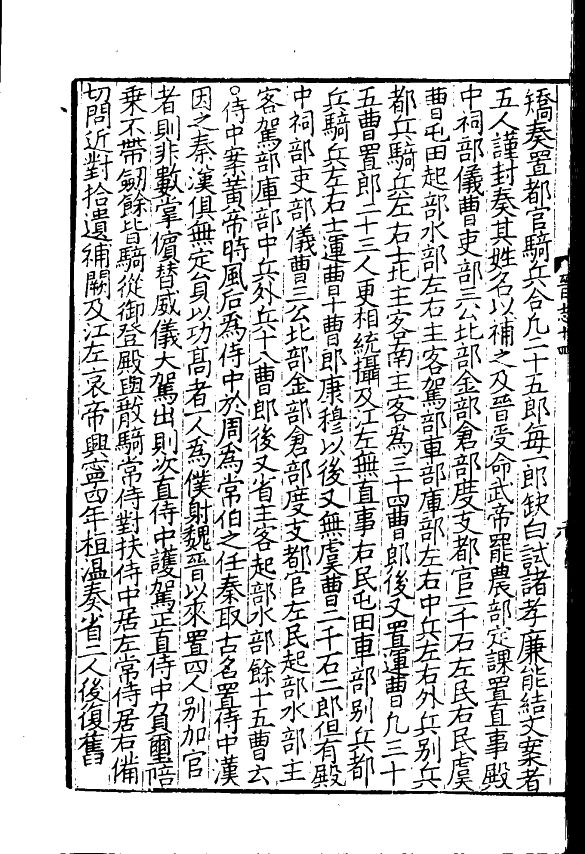 矯奏置都官騎兵合凡二十五郎每一郎缺白試諸孝廉能結文案者
五人謹封奏其姓名以補之及晉受命武帝罷農部定課置直事殿
中祠部儀曹吏部三公比部金部倉部度支都官二千石左民右民虞
曹屯田起部水部左右主客駕部車部庫部左右中兵左右外兵別兵
都兵騎兵左右士北主客南主客為三十四曹郎後又置運曹凡三十
五曹置郎二十三人更相統攝及江左無直事右民屯田車部別兵都
兵騎兵左右士運曹十曹郎康穆以後又無虞曹二千石二郎但有殿
中祠部吏部儀曹三公比部金部倉部度支都官左民起部水部主
客駕部庫部中兵外兵十八曹郎後又省主客起部水部餘十五曹云
○侍中案黃帝時風后為侍中於周為常伯之任秦取古名置侍中漢
因之秦漢俱無定員以功高者一人為僕射魏晉以來置四人別加官
者則非數掌儐替威儀大駕出則次直侍中護駕正直侍中負璽陪
乗不帶劒餘皆騎從御登殿與散騎常侍對扶侍中居左常侍居右備
切問近對拾遺補闕及江左哀帝興寧四年桓溫奏省二人後復舊